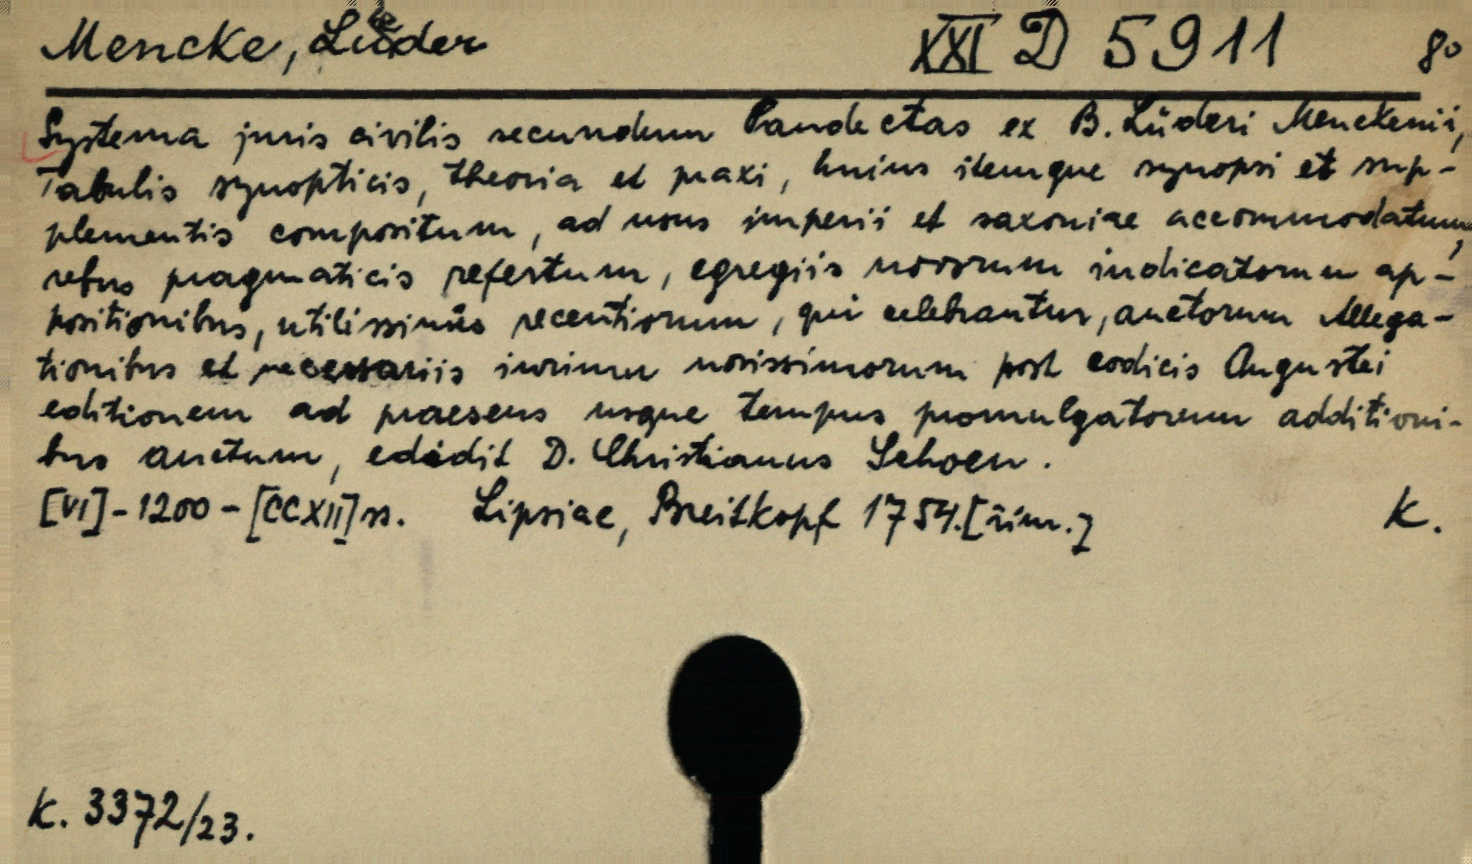 Mencke, Lüder XXI D 5911 8°
Systema juris civilis secundum Pandectas ex B. Lüderi Menckenii,
Tabulis synopticis, theoria et praxi, huius itemque synopsi et sup-
plementis compositum, ad usus imperii et saxoniae accommodatum,
rebus pragmaticis refertum, egregiis novorum indicatorum ap-
positionibus, utilissimis recentiorum, qui celebrantur, auctorum Allega-
tionibus et necessariis iurium novissimorum post codicis Augustei
editionem ad praesens usque tempus promulgatorum additioni-
bus auctum, edidit D. Christianus Schoen.
[VI]-1200-[CCXII] ss. Lipsiae, Breitkopf 1754. K.
K. 3372/23.